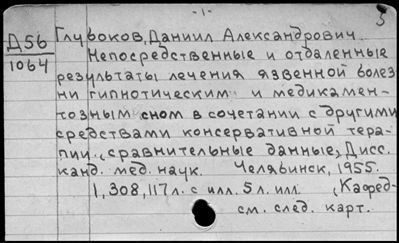 -1-
5
Д56
1064
Глубоков, Даниил Александрович.
Непосредственные и отдаленные
результаты лечения язвенной болез
ни гипнотическим и медикамен-
тозным сном в сочетании с другими
средствами консервативной тера-
пии. (сравнительные данные), Дисс.
канд. мед. наук. Челябинск, 1955.
1, 308, 117 л. с илл. 5 л. илл. (Кафед-
см. след. карт.